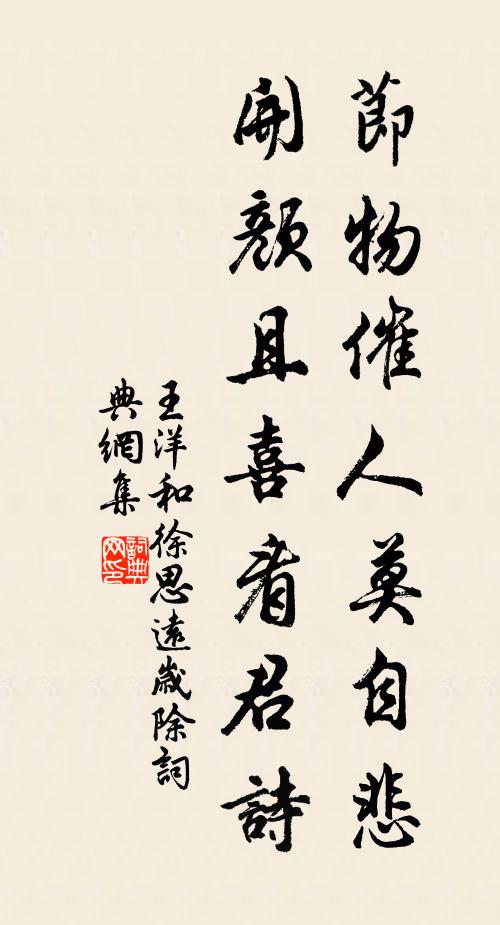 節物催人莫自悲
開顏且喜看君詩
王洋和徐思遠歲除詞
典網集
詞典
网印